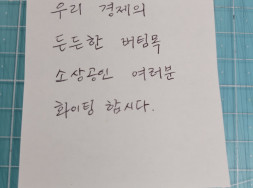 우리 경제의
든든한 버팀목
소상공인 여러분
화이팅 합시다.